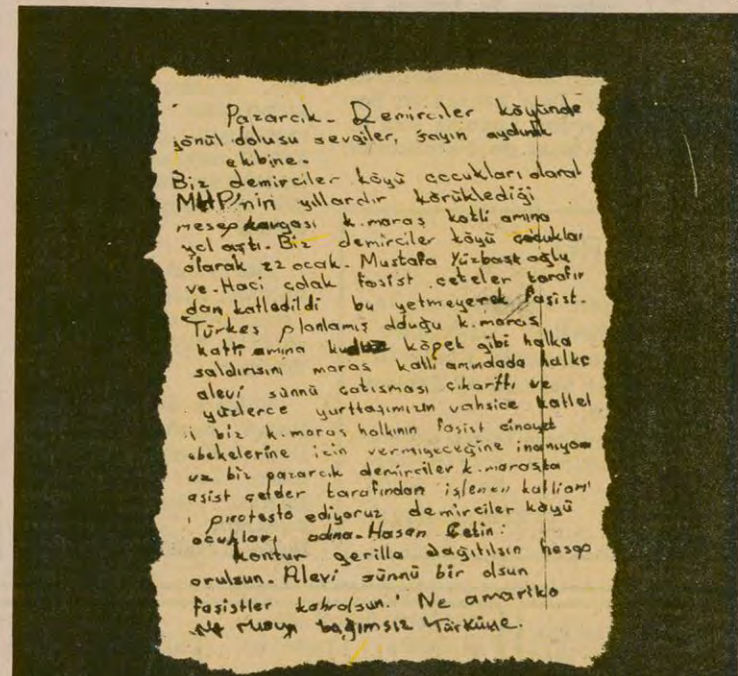 Pazarcık - Demirciler köyünde
gönül dolusu sevgiler, sayın aydınlık
ekibine.
Biz demirciler köyü çocukları olarak
MHP'nin yıllardır körüklediği
mesep kavgası k.maraş katli amına
yol açtı. Biz demirciler köyü çocukları
olarak 22 ocak. Mustafa Yüzbaşıoğlu
ve Haci çolak faşist çeteler tarafın
dan katledildi bu yetmeyerek faşist.
Türkeş planlamış olduğu k.maraş
katli amına kuduz köpek gibi halka
saldırısını maraş katli amındada halkç
alevi sünnü çatışması çıkarttı ve
yüzlerce yurttaşımızın vahsice katlel
i biz k.maraş halkının faşist cinayet
ebekelerine izin vermiyeceğine inanıyor
uz biz pazarcık demirciler k.maraşta
aşist çeteler tarafından işlenen katliam
ı protesto ediyoruz demirciler köyü
ocukları adına - Hasan Çetin:
kontur gerilla dağıtılsın hesap
orulsun. Alevi sünnü bir olsun
faşistler kahrolsun! Ne amarika
ne rusya bağımsız Türkiye.